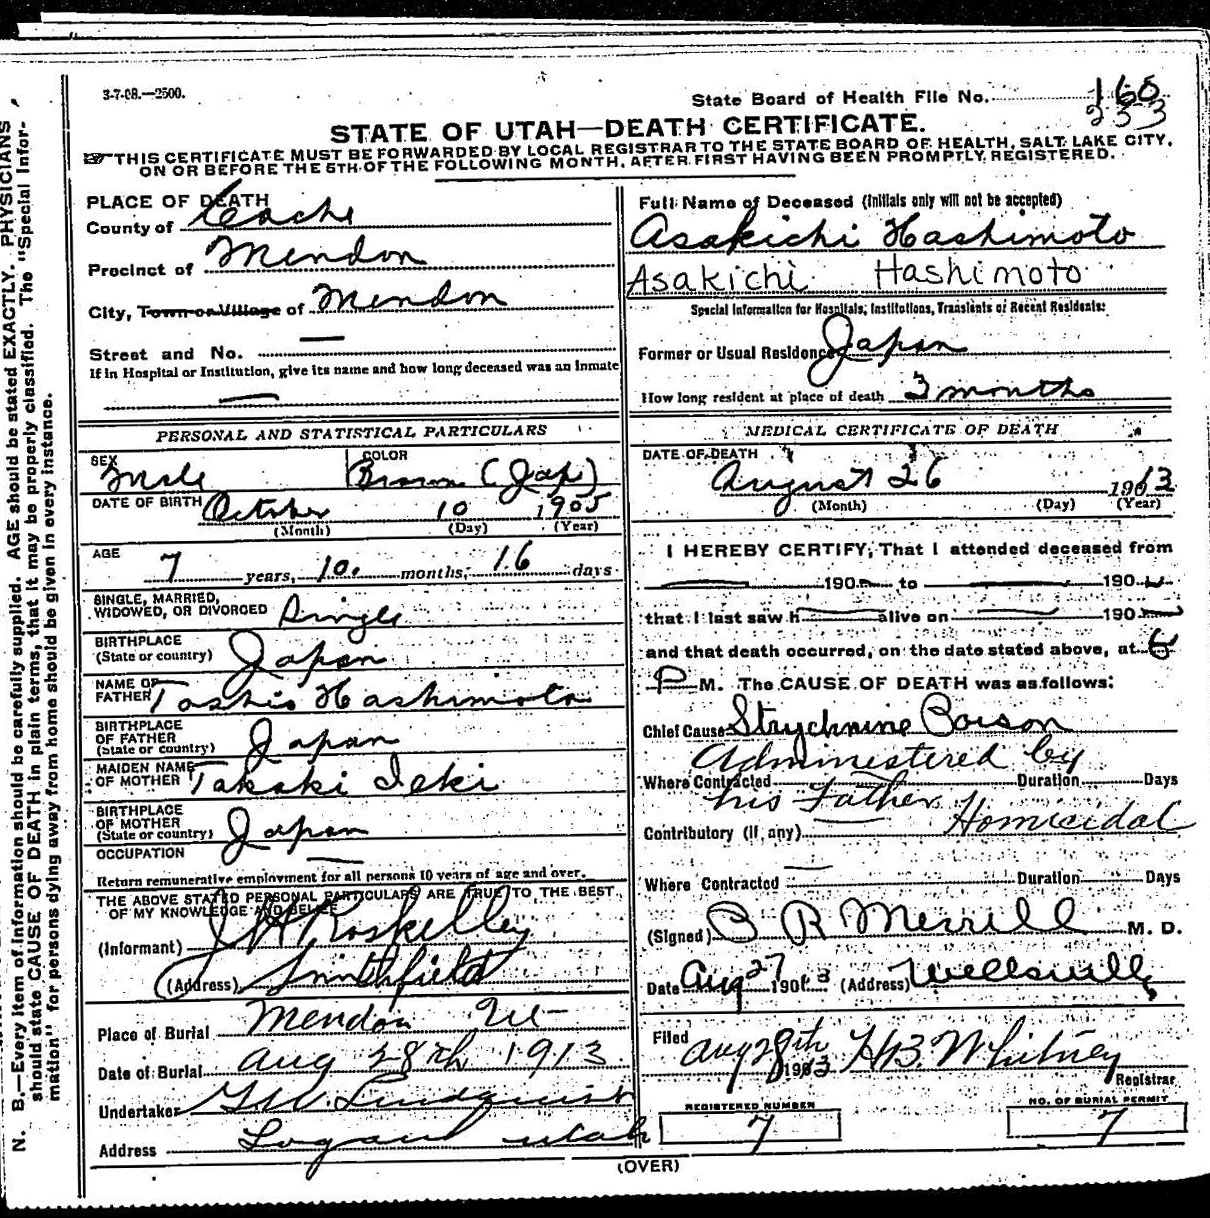 3-7-08.—2500.
State Board of Health File No. 166
233
STATE OF UTAH—DEATH CERTIFICATE.
THIS CERTIFICATE MUST BE FORWARDED BY LOCAL REGISTRAR TO THE STATE BOARD OF HEALTH, SALT LAKE CITY,
ON OR BEFORE THE 5TH OF THE FOLLOWING MONTH, AFTER FIRST HAVING BEEN PROMPTLY REGISTERED.
N. B.—Every item of information should be carefully supplied. AGE should be stated EXACTLY. PHYSICIANS
should state CAUSE OF DEATH in plain terms, that it may be properly classified. The "Special Infor-
mation" for persons dying away from home should be given in every instance.
PLACE OF DEATH
County of Cache
Precinct of Mendon
City, Town or Village of Mendon
Street and No. —
If in Hospital or Institution, give its name and how long deceased was an inmate
—
PERSONAL AND STATISTICAL PARTICULARS
SEX Male COLOR Brown (Jap)
DATE OF BIRTH October 10 1905
(Month) (Day) (Year)
AGE 7 years, 10 months, 16 days
SINGLE, MARRIED,
WIDOWED, OR DIVORCED Single
BIRTHPLACE
(State or country) Japan
NAME OF
FATHER Toshio Hashimoto
BIRTHPLACE
OF FATHER
(State or country) Japan
MAIDEN NAME
OF MOTHER Takaki Seki
BIRTHPLACE
OF MOTHER
(State or country) Japan
OCCUPATION —
Return remunerative employment for all persons 10 years of age and over.
THE ABOVE STATED PERSONAL PARTICULARS ARE TRUE TO THE BEST
OF MY KNOWLEDGE AND BELIEF
(Informant) J H Roskelley
(Address) Smithfield
Place of Burial Mendon
Date of Burial Aug 28th 1913
Undertaker G W. Lindquist
Address Logan Utah
Full Name of Deceased (initials only will not be accepted)
Asakichi Hashimoto
Asakichi Hashimoto
Special Information for Hospitals, Institutions, Transients or Recent Residents:
Former or Usual Residence Japan
How long resident at place of death 3 months
MEDICAL CERTIFICATE OF DEATH
DATE OF DEATH
August 26 1913
(Month) (Day) (Year)
I HEREBY CERTIFY, That I attended deceased from
— 190 — to — 190 —
that I last saw h — alive on — 190 —
and that death occurred, on the date stated above, at 6
P M. The CAUSE OF DEATH was as follows:
Chief Cause Strychnine Poison
Administered by
Where Contracted Duration Days
his Father Homicidal
Contributory (if any)
—
Where Contracted Duration Days
(Signed) B R Merrill M. D.
Date Aug 27 1913 (Address) Wellsville
Filed Aug 28th 1913 H B. Whitney
Registrar
REGISTERED NUMBER
7
NO. OF BURIAL PERMIT
7
(OVER)